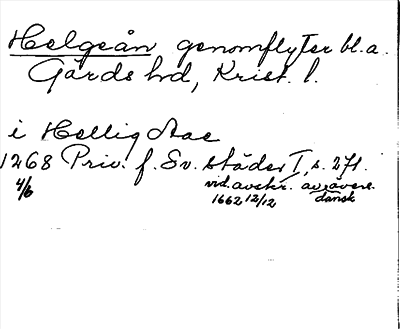 Helgeån genomflyter bl.a.
Gärds hd, Krist. l.
i Hellig Aae
1268 Priv. f. Sv. städer I, s. 271.
4/6 vid. avskr. av övers.
1662 12/12 dansk